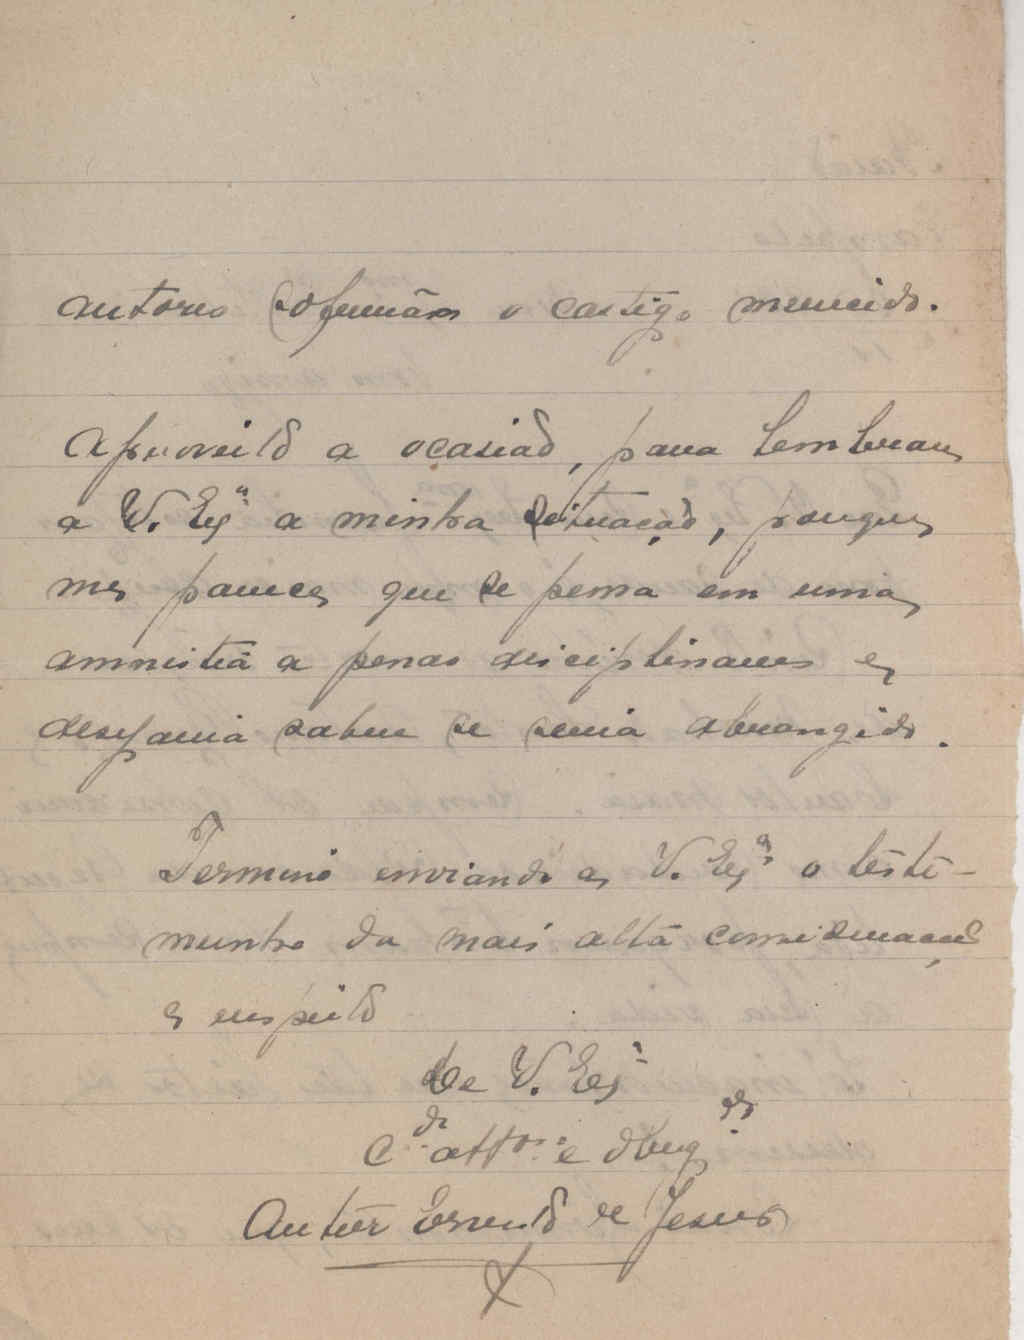 autores sofrerão o castigo merecido.
Aproveito a ocasião, para lembrar
a V. Exª a minha situação, porque
me parece que se pensa em uma
amnistia a penas disciplinares e
desejaria saber se seria abrangido.
Termino enviando a V. Exª o teste-
munho da mais alta consideração
e respeito
de V. Exª
C.do att.o e obrig.do
de Jesus